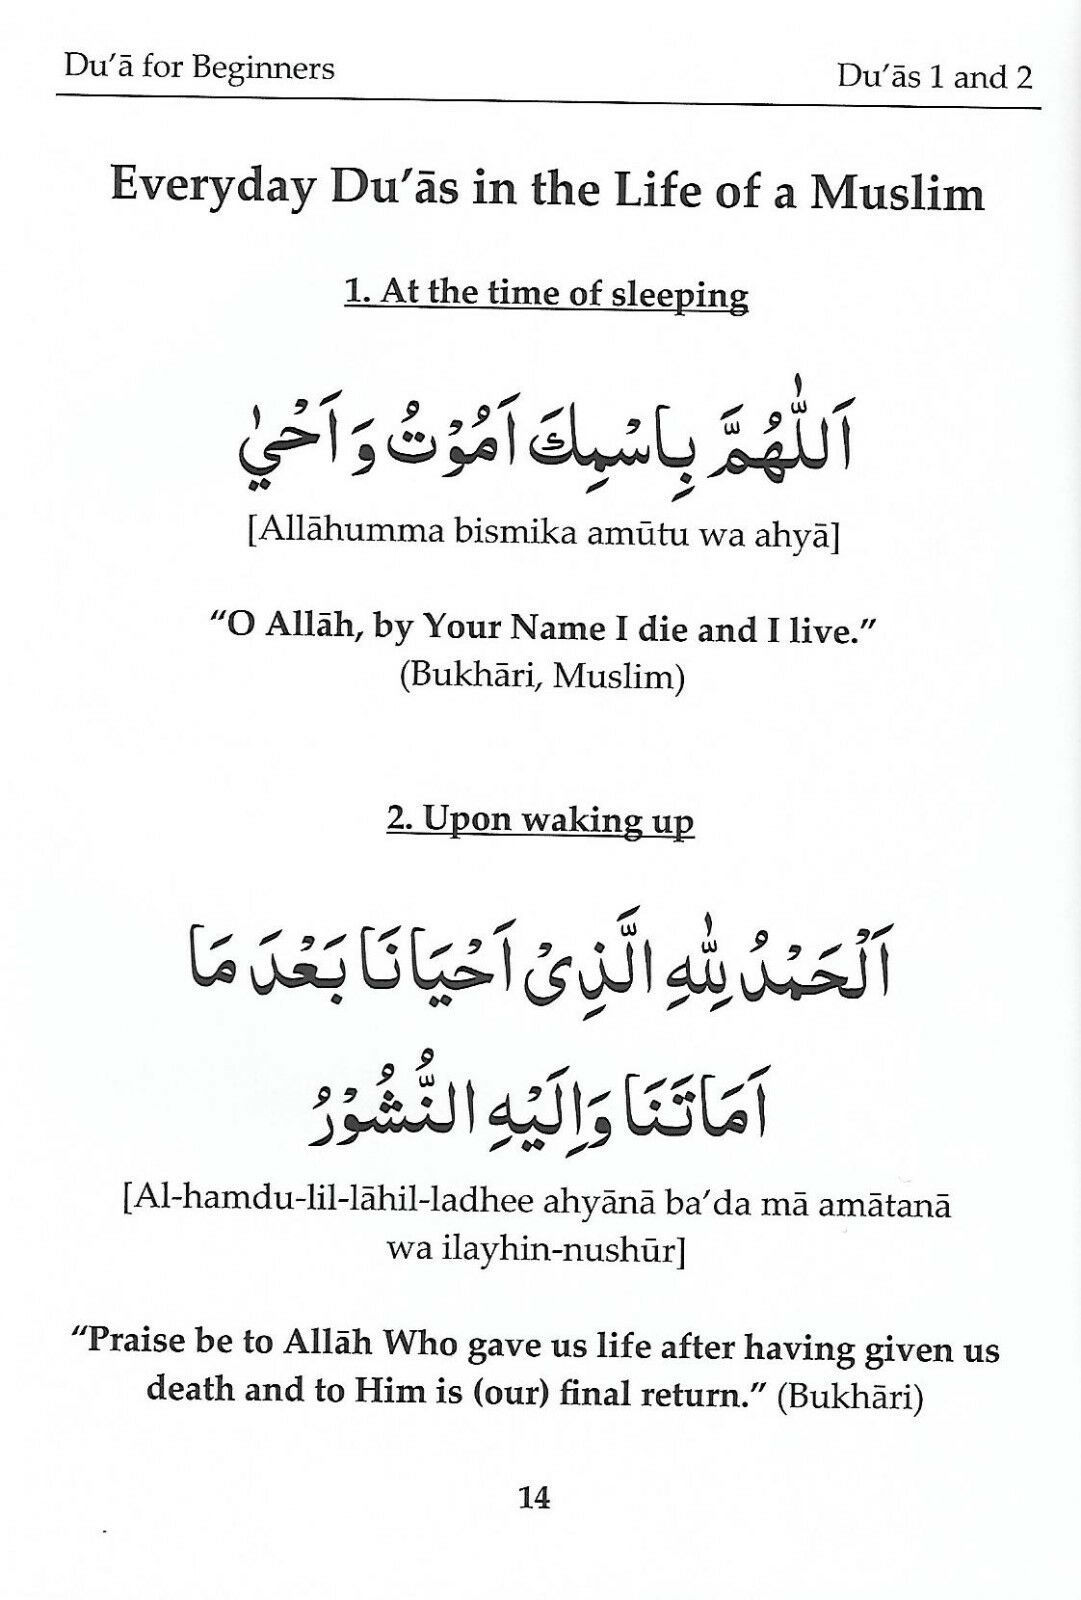 Du’ā for Beginners
Du’ās 1 and 2
Everyday Du’ās in the Life of a Muslim
1. At the time of sleeping
اَللّٰهُمَّ بِاسْمِكَ اَمُوْتُ وَ اَحْيٰ
[Allāhumma bismika amūtu wa ahyā]
“O Allāh, by Your Name I die and I live.”
(Bukhāri, Muslim)
2. Upon waking up
اَلْحَمْدُ لِلّٰهِ الَّذِىْ اَحْيَانَا بَعْدَ مَا
اَمَاتَنَا وَاِلَيْهِ النُّشُوْرُ
[Al-hamdu-lil-lāhil-ladhee ahyānā ba’da mā amātanā
wa ilayhin-nushūr]
“Praise be to Allāh Who gave us life after having given us
death and to Him is (our) final return.” (Bukhāri)
14